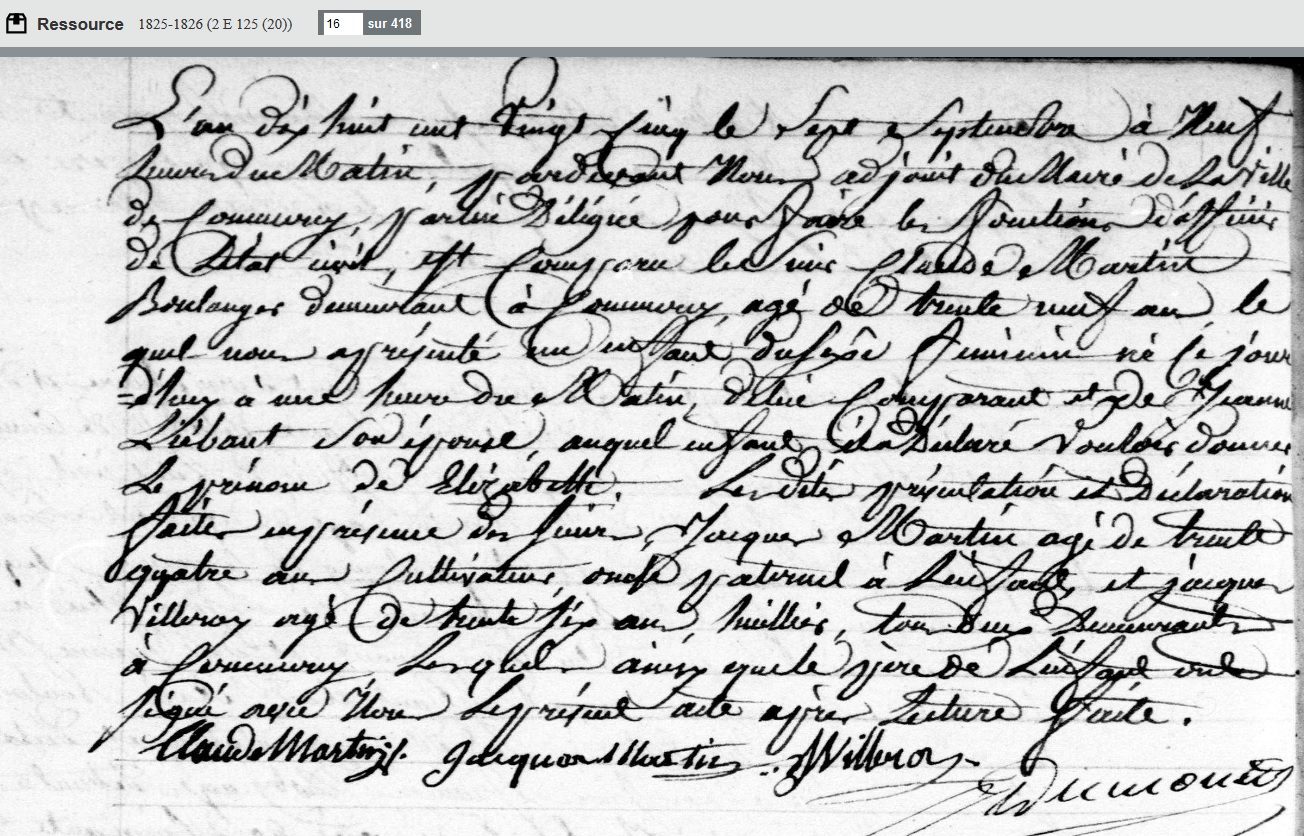 Ressource 1825-1826 (2 E 125 (20)) 16 sur 418
L'an dix huit cent vingt cinq le sept Septembre à Neuf
heures du Matin, pardevant Nous adjoint du Maire de La Ville
de Commercy, partie Déléguée pour faire les fonctions d'officier
de L'état civil, est Comparu le sieur Claude Martin
Boulanger demeurant à Commercy agé de trente neuf ans le
quel nous a présenté un enfant du sexe feminin né ce jour
=d'huy à une heure du Matin, de lui Comparant et de Jeanne
Liébaut son épouse, auquel enfant il a Déclaré Vouloir donner
Le prénom de Elizabeth. Les dites présentation et Déclaration
faites en présence des sieurs Jacques Martin agé de trente
quatre ans Cultivateur oncle paternel à L'enfant, et jacques
Villeroy agé de trente six ans huillier, tous Deux Demeurants
à Commercy Lesquels ainsy que le père de L'enfant ont
signé avec Nous Le présent acte après Lecture faite.
Claude Martin Jacques Martin Willeroy